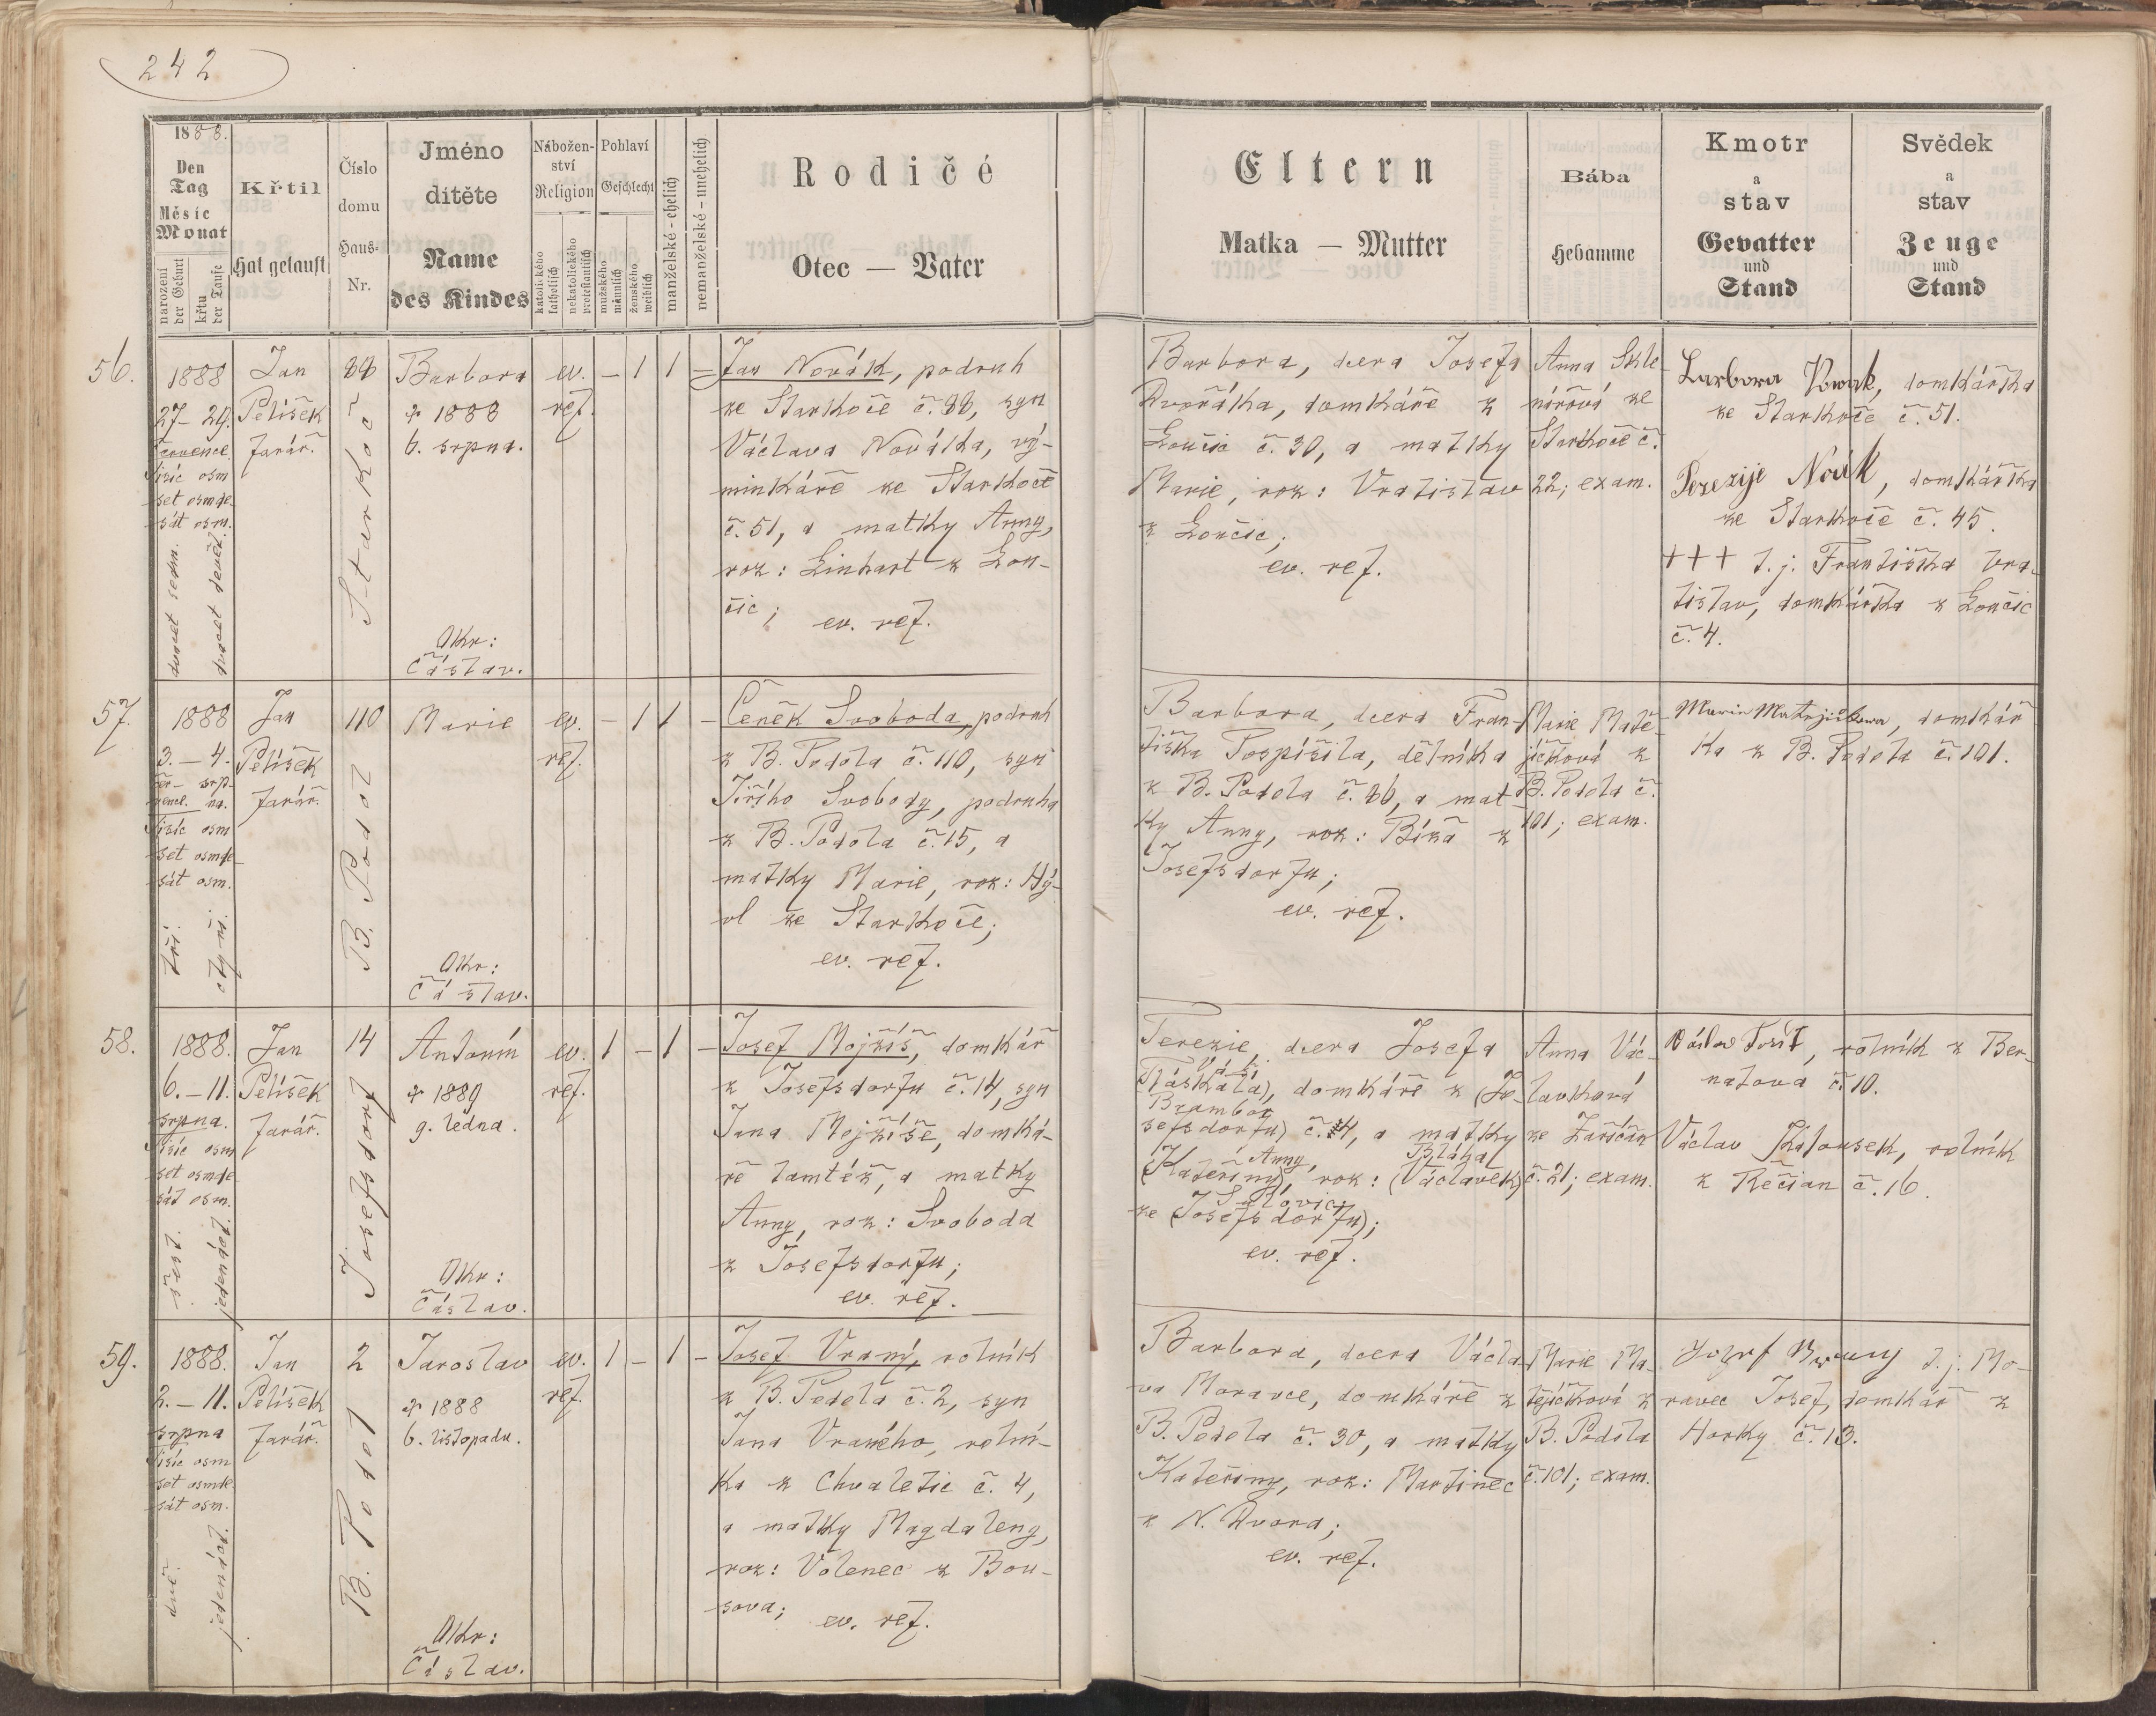 242
1888.
Den
Tag
Měsíc
Monat
narození
der Geburt
křtu
der Taufe
Křtil
Hat getauft
Číslo
domu
Haus-
Nr.
Jméno
dítěte
Name
des Kindes
Nábožen-
ství
Religion
katolického
katholisch
nekatolického
protestantisch
Pohlaví
Geschlecht
mužského
männlich
ženského
weiblich
manželské - ehelich
nemanželské - unehelich
Rodičé
Otec — Vater
Eltern
Matka — Mutter
Bába
Hebamme
Kmotr
a
stav
Gevatter
und
Stand
Svědek
a
stav
Zeuge
und
Stand
56.
1888
27 - 29.
července
Tisíc osm
set osmde-
sát osm.
dvacet sedm.
dvacet devět.
Jan
Pelíšek
farář.
88
Starkoč
Barbora
+ 1888
6. srpna.
Okr:
Čáslav.
ev.
ref.
— 1 1 —
Jan Novák, podruh
ze Starkoče č. 88, syn
Václava Nováka, vý-
minkáře ze Starkoče
č. 51, a matky Anny,
roz: Linhart z Lou-
čic; ev. ref.
Barbora, dcera Josefa
Dvořáka, domkáře z
Loučic č. 30, a matky
Marie, roz: Vratislav
z Loučic;
ev. ref.
Anna Skle-
nářová ze
Starkoče č.
22; exam.
Barbora Nowak, domkářka
ze Starkoče č. 51.
Terezije Novák, domkářka
ze Starkoče č. 45.
+++ t. j. Františka Vra-
tislav, domkářka z Loučic
č. 4.
57.
1888
3. — 4.
čer- srp-
vence. na.
Tisíc osm
set osmde-
sát osm.
tři.
čtyři.
Jan
Pelíšek
farář.
110
B. Podol
Marie
Okr:
Čáslav.
ev.
ref.
— 1 1 —
Čeněk Svoboda, podruh
z B. Podola č. 110, syn
Jiřího Svobody, podruha
z B. Podola č. 15, a
matky Marie, roz: Hý-
vl ze Starkoče;
ev. ref.
Barbora, dcera Fran-
tiška Pospíšila, dělníka
z B. Podola č. 86, a mat-
ky Anny, roz: Bíža z
Josefsdorfu;
ev. ref.
Marie Matě-
jíčková z
B. Podola č.
101; exam.
Marie Matejičkowa, domkář-
ka z B. Podola č. 101.
58.
1888.
6. — 11.
srpna.
Tisíc osm
set osmde-
sát osm.
šest.
jedenáct.
Jan
Pelíšek
farář.
14
Josefsdorf
Antonín
+ 1889
9. ledna.
Okr:
Čáslav.
ev.
ref.
1 — 1 —
Josef Mojžíš, domkář
z Josefsdorfu č. 14, syn
Jana Mojžíše, domká-
ře tamtéž, a matky
Anny, roz: Svoboda
z Josefsdorfu;
ev. ref.
Terezie, dcera Josefa
(Tláskala), domkáře z (Jo-
Brambor
sefsdorfu) č. 4, a matky
Anny, Bláha
(Kateřiny), roz: (Václavek)
Semtěš
ze (Josefsdorfu);
ev. ref.
Anna Vác-
lavková
ze Zaříčan
č. 21; exam.
Václav Tošil, rolník z Ber-
natova č. 10.
Václav Kalousek, rolník
z Rečian č. 16.
59.
1888.
2. — 11.
srpna
Tisíc osm
set osmde-
sát osm.
dvě.
jedenáct.
Jan
Pelíšek
farář.
2
B. Podol
Jaroslav
+ 1888
6. listopadu.
Okr:
Čáslav.
ev.
ref.
1 — 1 —
Josef Vraný, rolník
z B. Podola č. 2, syn
Jana Vraného, rolní-
ka z Chvaletic č. 4,
a matky Magdaleny,
roz: Volenec z Bou-
sova; ev. ref.
Barbora, dcera Václa-
va Moravce, domkáře z
B. Podola č. 30, a matky
Kateřiny, roz: Martinec
z N. Dvora;
ev. ref.
Marie Ma-
tějíčková z
B. Podola
č. 101; exam.
t. j. Mo-
ravec Josef, domkář z
Horky č. 13.